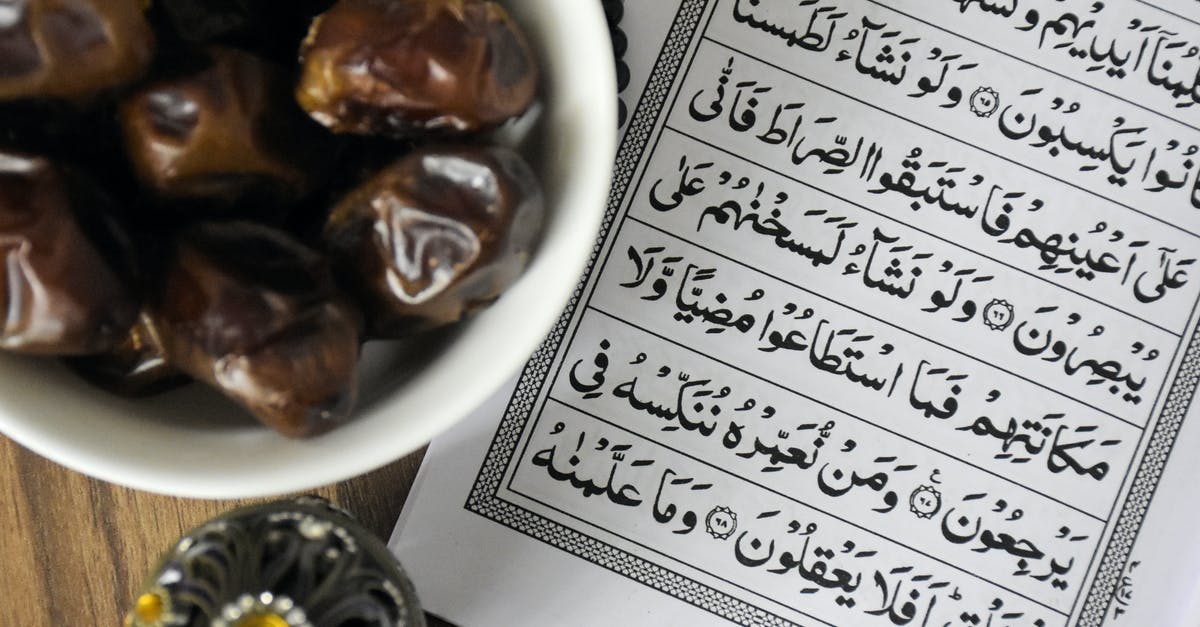 اَيْدِيْهِمْ
يَكْسِبُوْنَ ۶۵ وَلَوْ نَشَآءُ لَطَمَسْنَا
عَلٰۤى اَعْيُنِهِمْ فَاسْتَبَقُوا الصِّرَاطَ فَاَنّٰى
يُبْصِرُوْنَ ۶۶ وَلَوْ نَشَآءُ لَمَسَخْنٰهُمْ عَلٰى
مَكَانَتِهِمْ فَمَا اسْتَطَاعُوْا مُضِيًّا وَّلَا
يَرْجِعُوْنَ ۶۷ وَمَنْ نُّعَمِّرْهُ نُنَكِّسْهُ فِى
اَفَلَا يَعْقِلُوْنَ ۶۸ وَمَا عَلَّمْنٰهُ